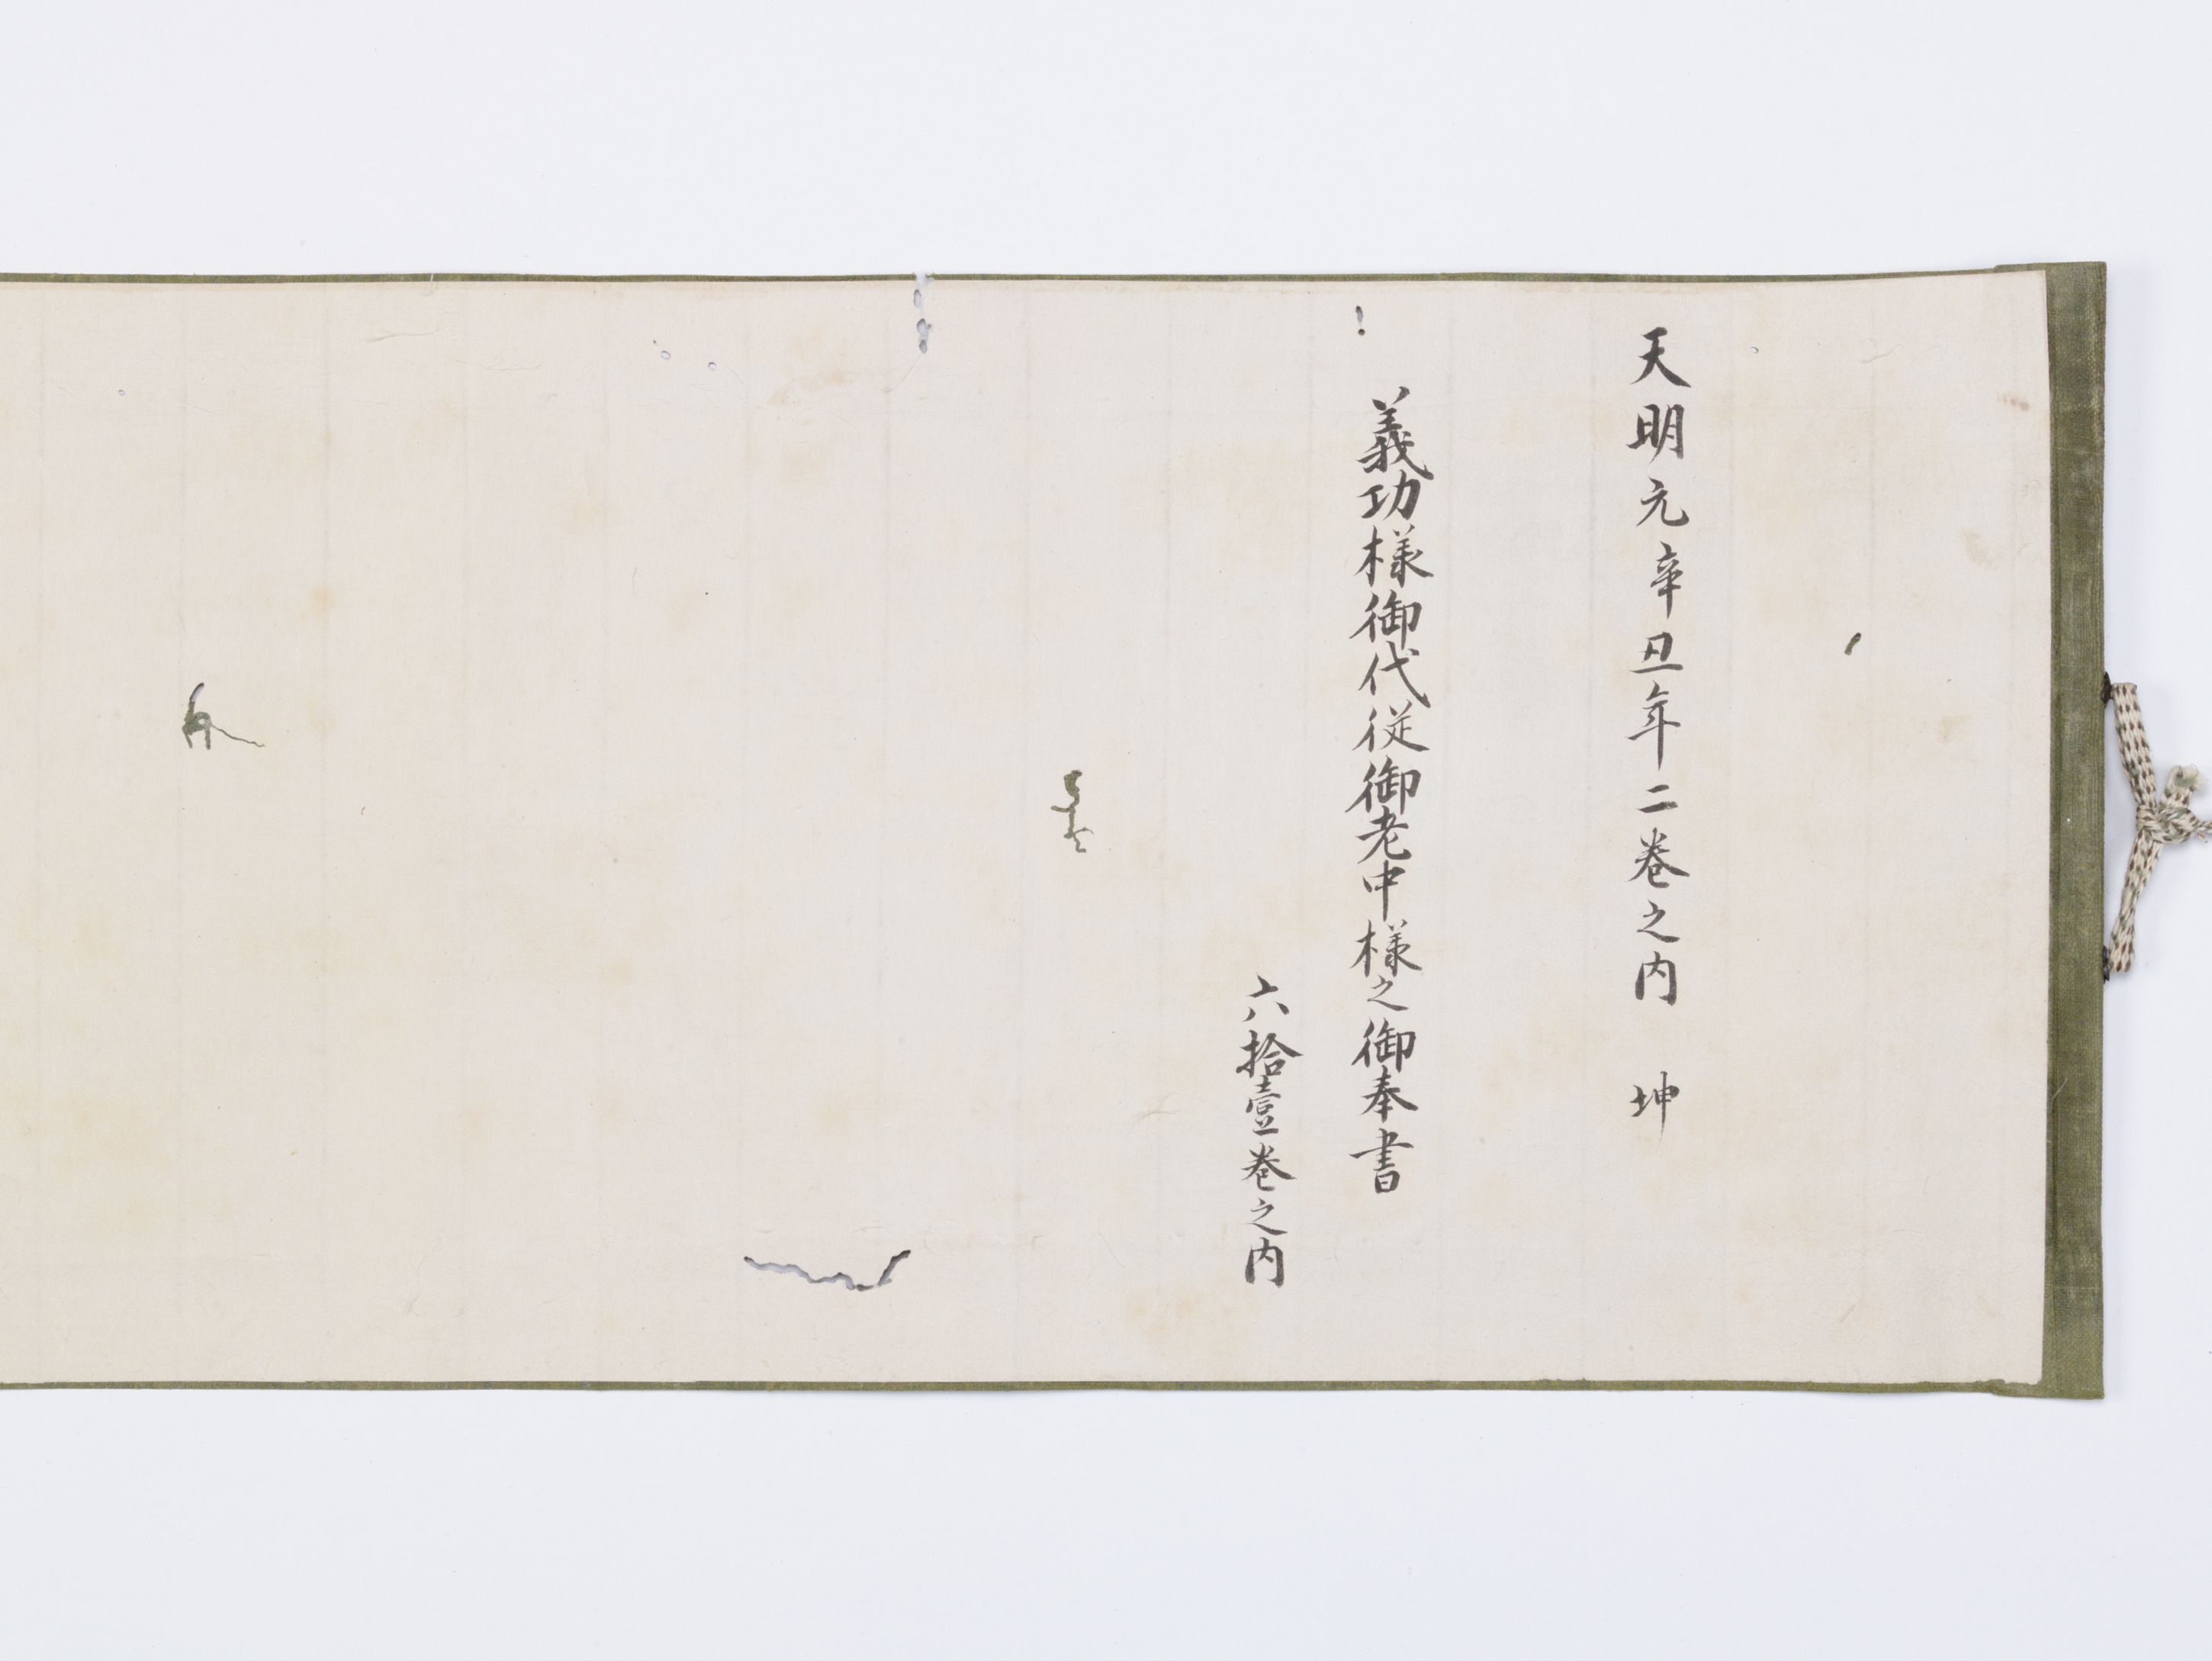 天明元辛丑年二巻之内　坤
義功様御代従御老中様之御奉書
六拾壹巻之内